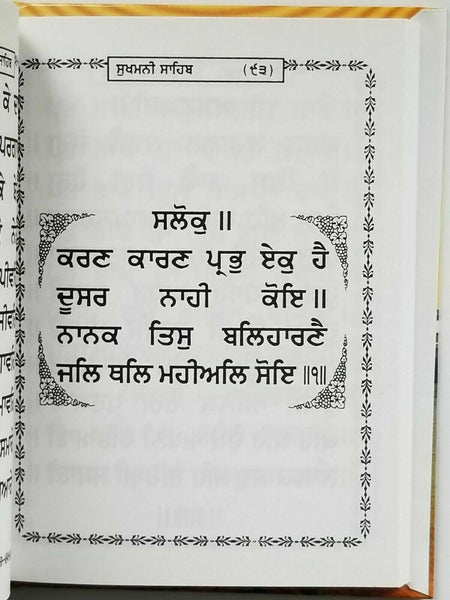 ਸੁਖਮਨੀ ਸਾਹਿਬ (੯੩)
ਸਲੋਕੁ ॥
ਕਰਣ ਕਾਰਣ ਪ੍ਰਭੁ ਏਕੁ ਹੈ
ਦੂਸਰ ਨਾਹੀ ਕੋਇ ॥
ਨਾਨਕ ਤਿਸੁ ਬਲਿਹਾਰਣੈ
ਜਲਿ ਥਲਿ ਮਹੀਅਲਿ ਸੋਇ ॥੧॥